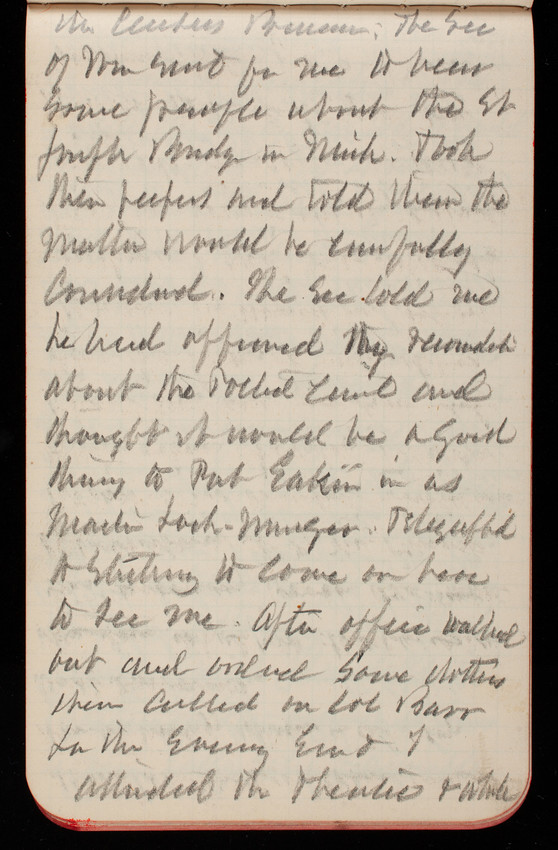 the Census Bureau. The Sec
of War sent for me to hear
some people about the St
Joseph Bridge in Mich. Took
their papers and told them the
matter would be carefully
Considered. The Sec told me
he had approved my
about the Rocket and
thought it would be a Good
thing to Put Eakin in as
Master Telegraph'd
to to Come on here
to see me. After office walked
out and ordered some clothes
then Called on Col Barr
In the Evening Gend I
attended the Theatre &